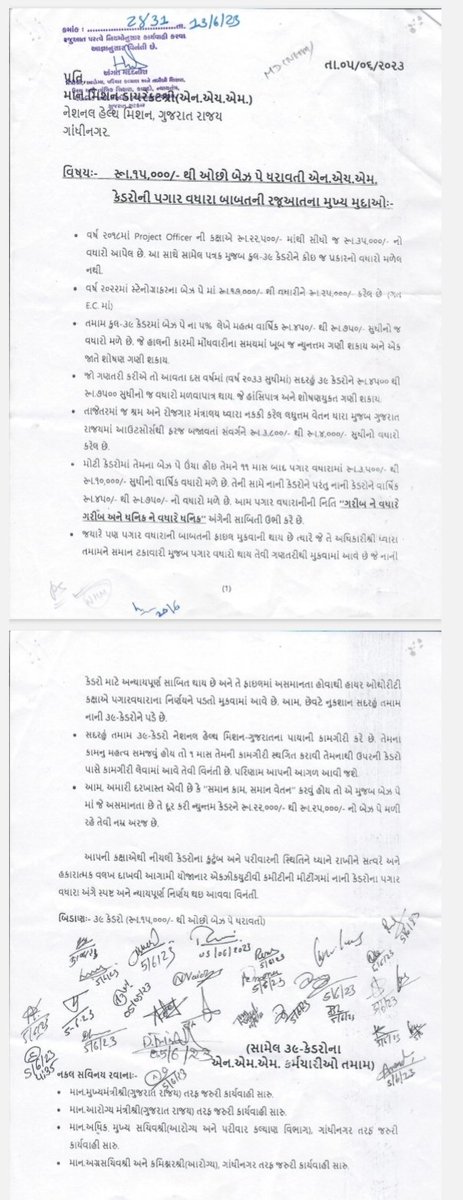 ક્રમાંક : 2831 તા. 23/6/23
રજૂઆત પરત્વે નિયમોનુસાર કાર્યવાહી કરવા
આજ્ઞાનુસાર વિનંતી છે.
તા.૦૫/૦૬/૨૦૨૩
પ્રતિ,
મા. મિશન ડાયરેક્ટરશ્રી(એન.એચ.એમ.)
નેશનલ હેલ્થ મિશન, ગુજરાત રાજય
ગાંધીનગર.
વિષયઃ- રૂા.૧૫,૦૦૦/- થી ઓછો બેઝ પે ધરાવતી એન.એચ.એમ.
કેડરોની પગાર વધારા બાબતની રજૂઆતના મુખ્ય મુદ્દાઓઃ-
• વર્ષ ૨૦૧૮માં Project Officer ની કક્ષાએ રૂા.૨૨,૫૦૦/- માંથી સીધો જ રૂા.૩૫,૦૦૦/- નો
વધારો આપેલ છે. આ સાથે સામેલ પત્રક મુજબ કુલ-૩૯ કેડરોને કોઇ જ પ્રકારનો વધારો મળેલ
નથી.
• વર્ષ ૨૦૨૨માં સ્ટેનોગ્રાફરના બેઝ પે માં રૂા.૧૭,૦૦૦/- થી વધારીને રૂા.૨૫,૦૦૦/- કરેલ છે (ગત
E.C. માં)
• તમામ કુલ-૩૯ કેડરમાં બેઝ પે ના ૫% લેખે મહત્મ વાર્ષિક રૂા.૪૫૦/- થી રૂા.૭૫૦/- સુધીનો જ
વધારો મળે છે. જે હાલની કારમી મોંઘવારીના સમયમાં ખૂબ જ ન્યુનત્તમ ગણી શકાય અને એક
જાતે શોષણ ગણી શકાય.
• જો ગણતરી કરીએ તો આવતા દસ વર્ષમાં (વર્ષ ૨૦૩૩ સુધીમાં) સદરહું ૩૯ કેડરોને રૂા.૪૫૦૦ થી
રૂા.૭૫૦૦ સુધીનો જ વધારો મળવાપાત્ર થાય. જે હાંસિપાત્ર અને શોષણયુક્ત ગણી શકાય.
• તાજેતરમાં જ શ્રમ અને રોજગાર મંત્રાલય ધ્વારા નક્કી કરેલ લઘુત્તમ વેતન ધારા મુજબ ગુજરાત
રાજયમાં આઉટસોર્સથી ફરજ બજાવતાં સંવર્ગને રૂા.૩,૮૦૦/- થી રૂા.૪,૦૦૦/- સુધીનો વધારો
કરેલ છે.
• મોટી કેડરોમાં તેમના બેઝ પે ઉંચા હોઇ તેમને ૧૧ માસ બાદ પગાર વધારામાં રૂા.૩,૫૦૦/- થી
રૂા.૧૦,૦૦૦/- સુધીનો વાર્ષિક વધારો મળે છે. તેની સામે નાની કેડરોને પરંતુ નાની કેડરોને વાર્ષિક
રૂા.૪૫૦/- થી રૂા.૭૫૦/- નો વધારો મળે છે. આમ પગાર વધારાનીની નિતિ "ગરીબ ને વધારે
ગરીબ અને ધનિક ને વધારે ધનિક" અંગેની સાબિતી ઉભી કરે છે.
• જયારે પણ પગાર વધારાની બાબતની ફાઇલ મુકવાની થાય છે ત્યારે જે તે અધિકારીશ્રી ધ્વારા
તમામને સમાન ટકાવારી મુજબ પગાર વધારો થાય તેવી ગણતરીથી મુકવામાં આવે છે જે નાની
(1)
20/6
કેડરો માટે અન્યાયપૂર્ણ સાબિત થાય છે અને તે ફાઇલમાં અસમાનતા હોવાથી હાયર ઓથોરીટી
કક્ષાએ પગારવધારાના નિર્ણયને પડતો મુકવામાં આવે છે. આમ, છેવટે નુકશાન સદરહું તમામ
નાની ૩૯-કેડરોને પડે છે.
• સદરહું તમામ ૩૯-કેડરો નેશનલ હેલ્થ મિશન-ગુજરાતના પાયાની કામગીરી કરે છે. તેમના
કામનુ મહત્વ સમજવું હોય તો ૧ માસ તેમની કામગીરી સ્થગિત કરાવી તેમનાથી ઉપરની કેડરો
પાસે કામગીરી લેવામાં આવે તેવી વિનંતી છે. પરિણામ આપની આગળ આવી જશે.
• આમ, અમારી દરખાસ્ત એવી છે કે "સમાન કામ, સમાન વેતન" કરવું હોય તો એ મુજબ બેઝ પે
માં જે અસમાનતા છે તે દૂર કરી ન્યુન્તમ કેડરને રૂા.૨૨,૦૦૦/- થી રૂા.૨૫,૦૦૦/- નો બેઝ પે મળી
રહે તેવી નમ્ર અરજ છે.
આપની કક્ષાએથી નીચલી કેડરોના કુટુંબ અને પરીવારની સ્થિતિને ધ્યાને રાખીને સત્વરે અને
હકારાત્મક વલખ દાખવી આગામી યોજાનાર એક્ઝીક્યુટીવી કમીટીની મીટીંગમાં નાની કેડરોના પગાર
વધારા અંગે સ્પષ્ટ અને ન્યાયપૂર્ણ નિર્ણય થઇ આવવા વિનંતી.
બિડાણઃ- ૩૯ કેડરો (રૂા.૧૫,૦૦૦/- થી ઓછો બેઝ પે ધરાવતી)
(સામેલ ૩૯-કેડરોના
એન.એમ.એમ. કર્મચારીઓ તમામ)
નકલ સવિનય રવાનાઃ-
• માન.મુખ્યમંત્રીશ્રી(ગુજરાત રાજય) તરફ જરુરી કાર્યવાહી સારુ.
• માન.આરોગ્ય મંત્રીશ્રી(ગુજરાત રાજય) તરફ જરુરી કાર્યવાહી સારુ.
• માન.અધિક મુખ્ય સચિવશ્રી(આરોગ્ય અને પરીવાર કલ્યાણ વિભાગ), ગાંધીનગર તરફ જરુરી
કાર્યવાહી સારુ.
• માન.અગ્રસચિવશ્રી અને કમિશ્નરશ્રી(આરોગ્ય), ગાંધીનગર તરફ જરુરી કાર્યવાહી સારુ.